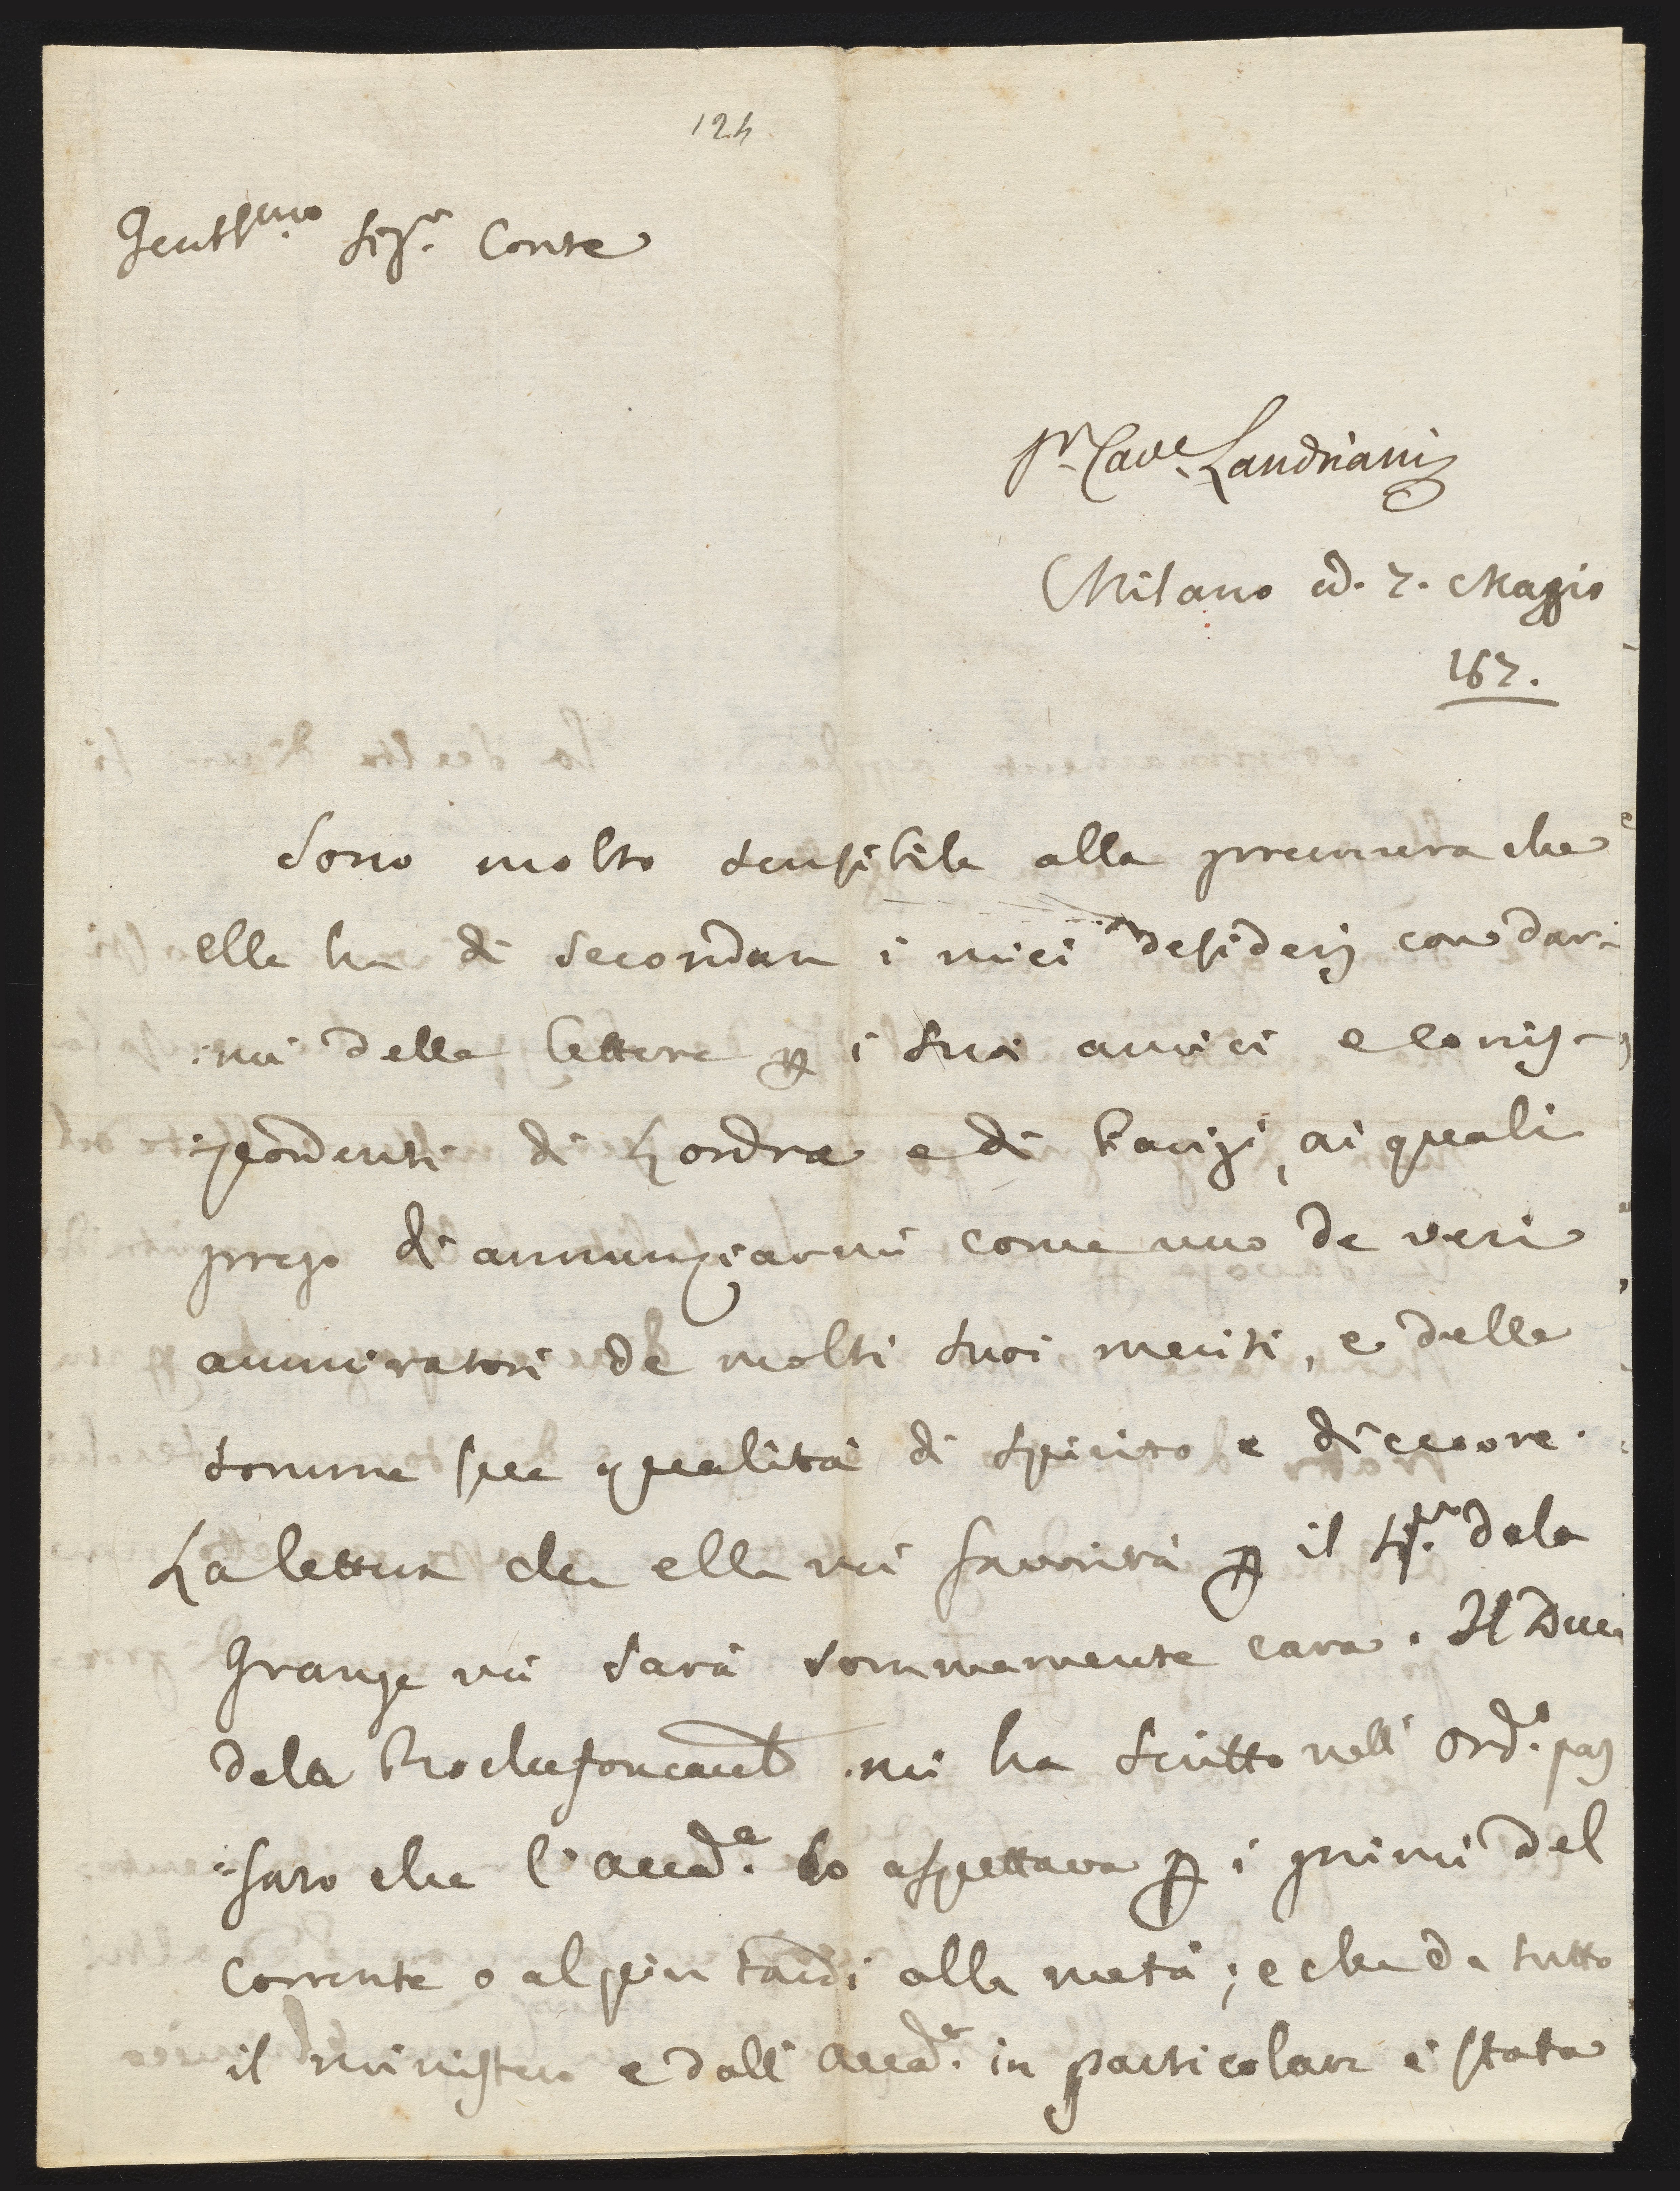 124
Gentilmo Sigr. Conte
Sr. Cave. Landriani
Milano ad. 7. Maggio
187.
Sono molto sensibile alla premura che
ella ha di secondare i miei desiderj con dar-
mi delle lettere p i suoi amici e corris-
pondenti di Londra e di Parigi, ai quali
prego di annunziarmi come uno de veri
ammiratori de molti suoi meriti, e delle
somme sue qualità di spirito e di cuore.
La lettera che ella mi favorirà p il Sigr. dela
Grange mi sarà sommamente cara. Il Duca
dela Rochefoucault mi ha scritto nell' Ord.o pas
sato che l' Accad.a lo aspettava p i primi del
corrente o al più tardi alla metà; e che da tutto
il ministero e dall' Accad.a in particolare è stata